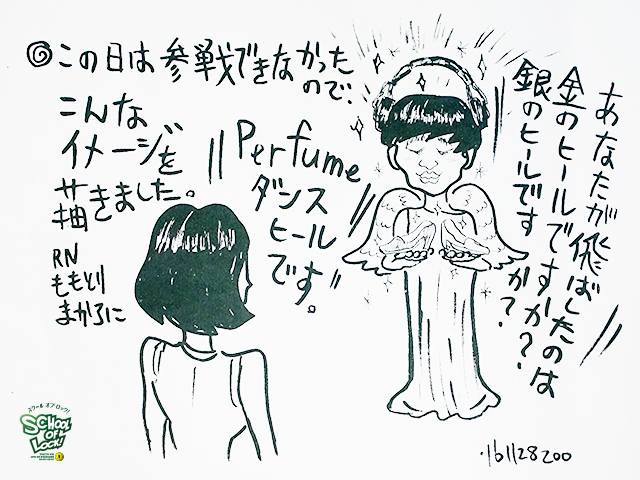 ◎この日は参戦できなかった
ので、
こんな
イメージを
描きました。
RN
ももとり
まかろに
あなたが飛ばしたのは
金のヒールですか?
銀のヒールですか?
"Perfume
ダンス
ヒール
です。"
スクール オブ ロック!
SCHOOL
OF
LOCK!
'161128200